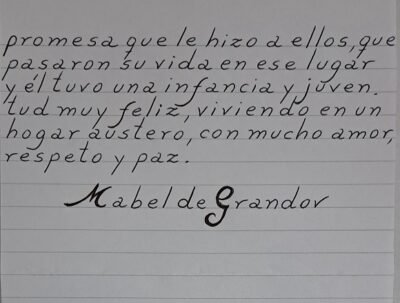 promesa que le hizo a ellos, que
pasaron su vida en ese lugar
y él tuvo una infancia y juven.
tud muy feliz, viviendo en un
hogar austero, con mucho amor,
respeto y paz.
Mabel de Grandov